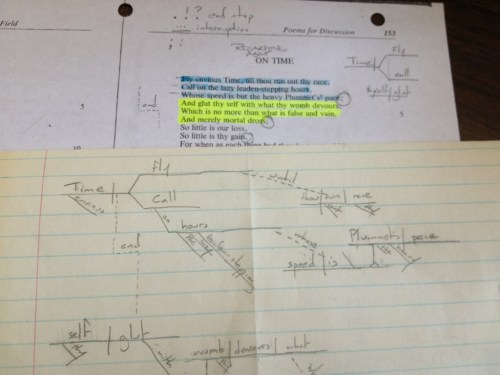 Field
. ! ? end stop
... interruption
Poems for Discussion 153
ON TIME
Fly envious Time, till thou run out thy race,
Call on the lazy leaden-stepping hours,
Whose speed is but the heavy Plummets pace;
And glut thy self with what thy womb devours,
Which is no more than what is false and vain,
And merely mortal dross;
So little is our loss,
So little is thy gain.
For when as each thing bad
Time
Fly
call
thyself glut
and
5
5
10
Time
envious
Fly
until
thou run race
Call
on
hours
the
lazy
leaden-stepping
whose
speed is
Plummets pace
and
self
thy
glut
with
womb devours what
thy